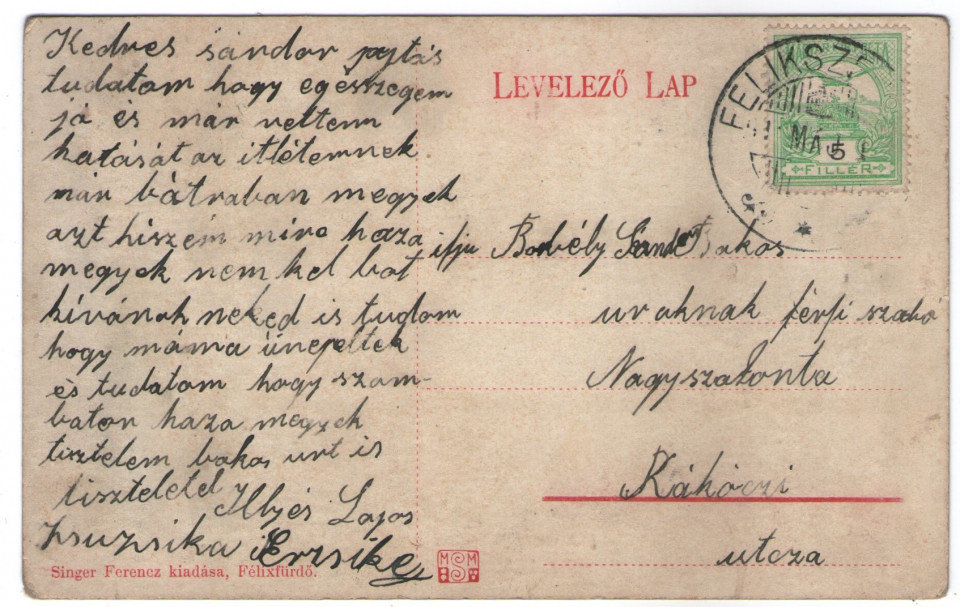 Kedves sándor pajtás
tudatom hogy egésszegem
jó és már vettem
hatását az itlétemnek
már bátraban megyek
azt hiszem mire haza
megyek nem kel bot
kívánok neked is tudom
hogy máma ünepeltek
és tudatom hogy szom-
baton haza megyek
tisztelem bakos urt is
tiszteletel
Illyés Lajos
Zsuzsika Erzsike
Singer Ferencz kiadása, Félixfürdő.
MSM
LEVELEZŐ LAP
FELIKSZF
MÁJ
5
FILLER
ifju Borbély Sándor Bakos
uraknak férfi szabó
Nagyszalonta
Rákóczi
utcza